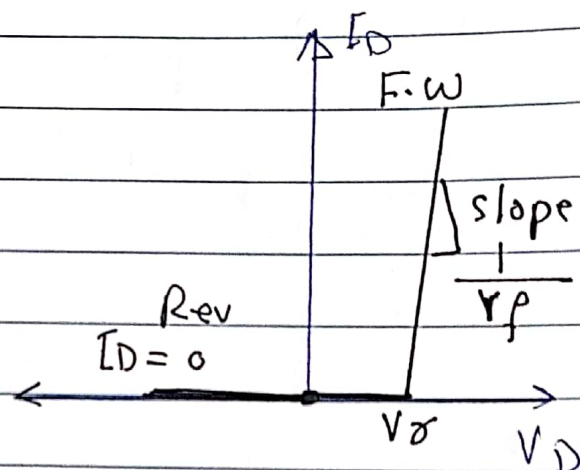 I_D
F.W
slope
1
r_f
Rev
I_D = 0
Vγ
V_D